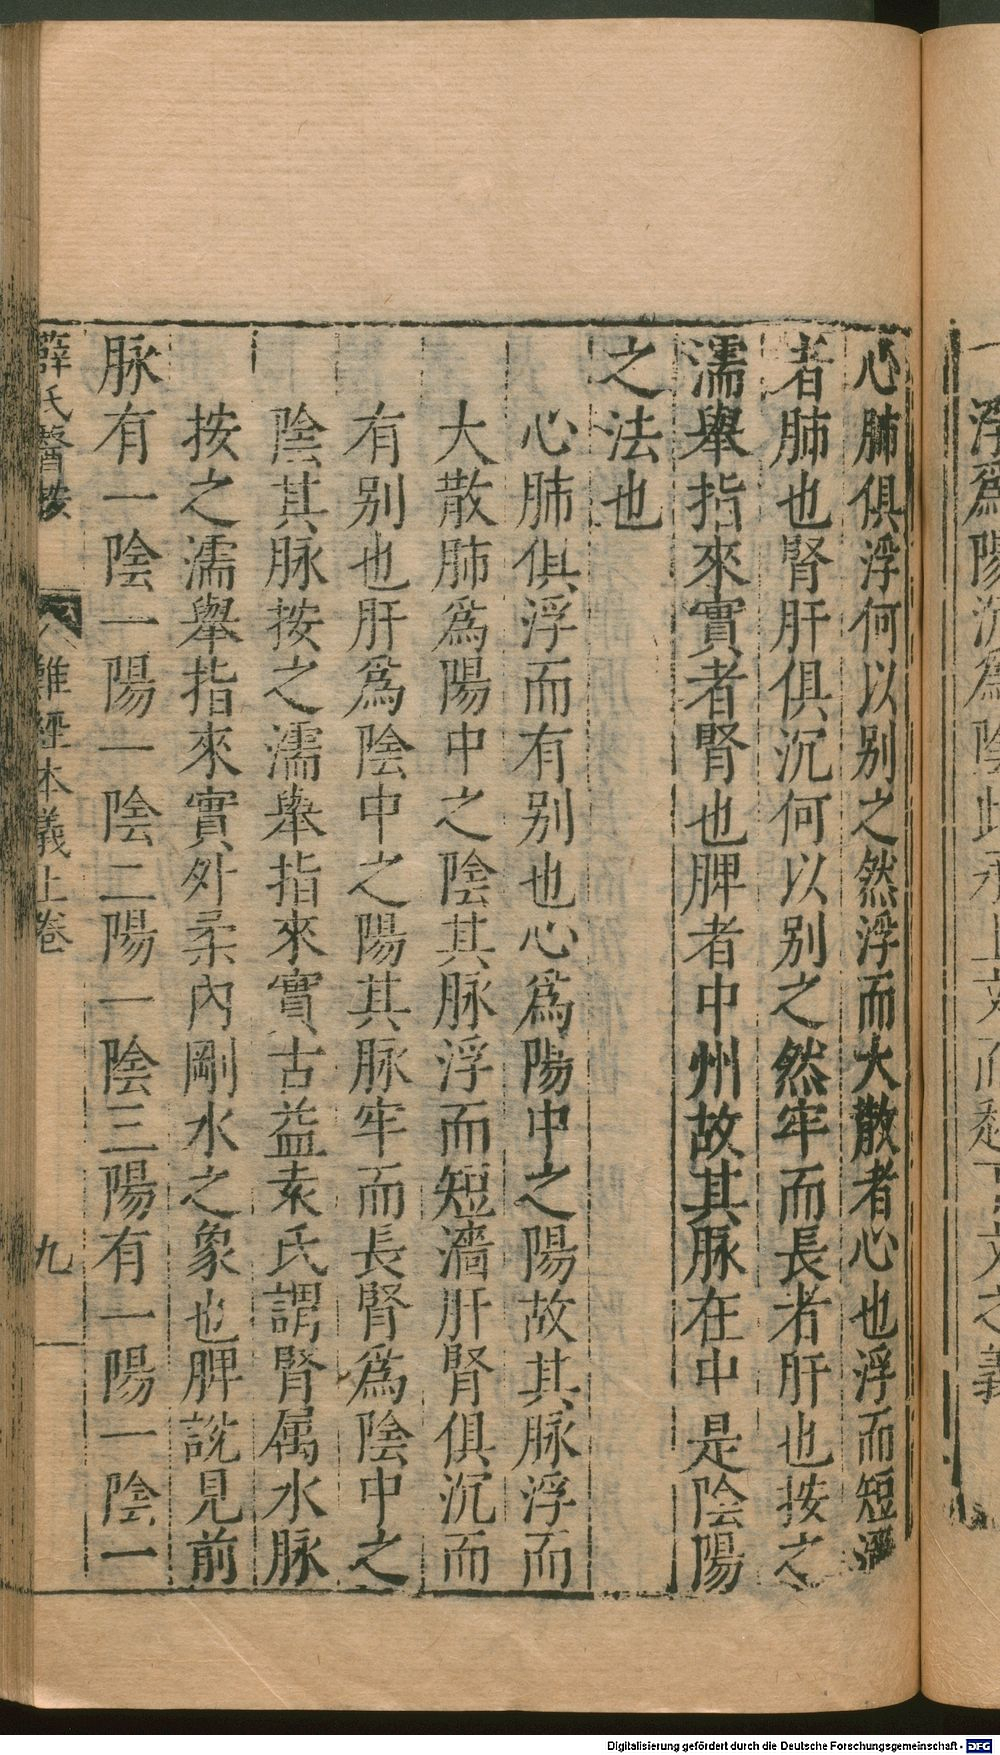 一浮為陽沉為陰此承上文而起下文之義
心肺俱浮何以别之然浮而大散者心也浮而短濇
者肺也腎肝俱沉何以别之然牢而長者肝也按之
濡舉指來實者腎也脾者中州故其脉在中是陰陽
之法也
心肺俱浮而有别也心爲陽中之陽故其脉浮而
大散肺爲陽中之陰其脉浮而短濇肝腎俱沉而
有别也肝爲陰中之陽其脉牢而長腎爲陰中之
陰其脉按之濡舉指來實古益袁氏謂腎属水脉
按之濡舉指來實外柔内剛水之象也脾說見前
脉有一陰一陽一陰二陽一陰三陽有一陽一陰一
薛氏醫按 難經本義上卷 九
Digitalisierung gefördert durch die Deutsche Forschungsgemeinschaft - DFG